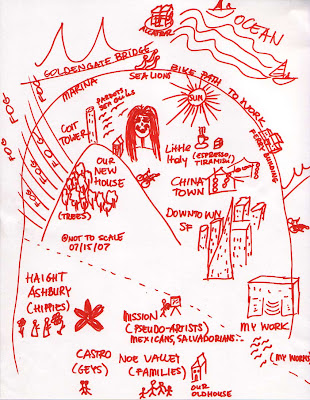 ALCATRAZ
OCEAN
GOLDENGATE BRIDGE
SEA LIONS
BIKE PATH TO WORK
MARINA
FOG
FOG
FOG
FOG
FOG
PARROTS
SEAGULLS
SUN
COIT
TOWER
FERRY BUILDING
Little
Italy
(ESPRESSO,
TIRAMISU)
OUR
NEW
HOUSE
CHINA
TOWN
(TREES)
DOWNTOWN
SF
@NOT TO SCALE
07/15/07
HAIGHT
ASHBURY
(HIPPIES)
MISSION
(PSEUDO-ARTISTS)
MEXICANS, SALVADORIANS...
MY WORK
(MY WORK)
CASTRO
(GEYS)
NOE VALLEY
(FAMILIES)
OUR
OLD HOUSE